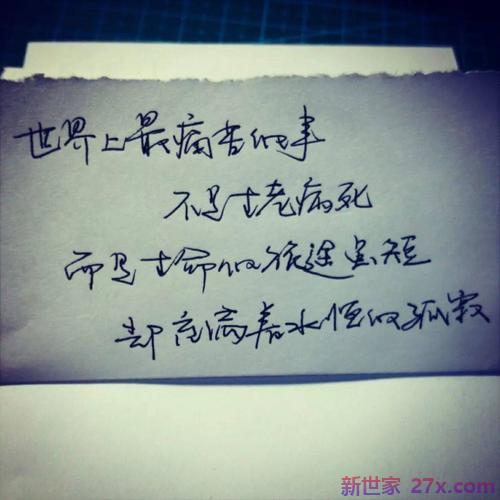 世界上最痛苦的事
不是生老病死
而是生命的旅途虽短
却充满着永恒的孤寂
新世家 27x.com